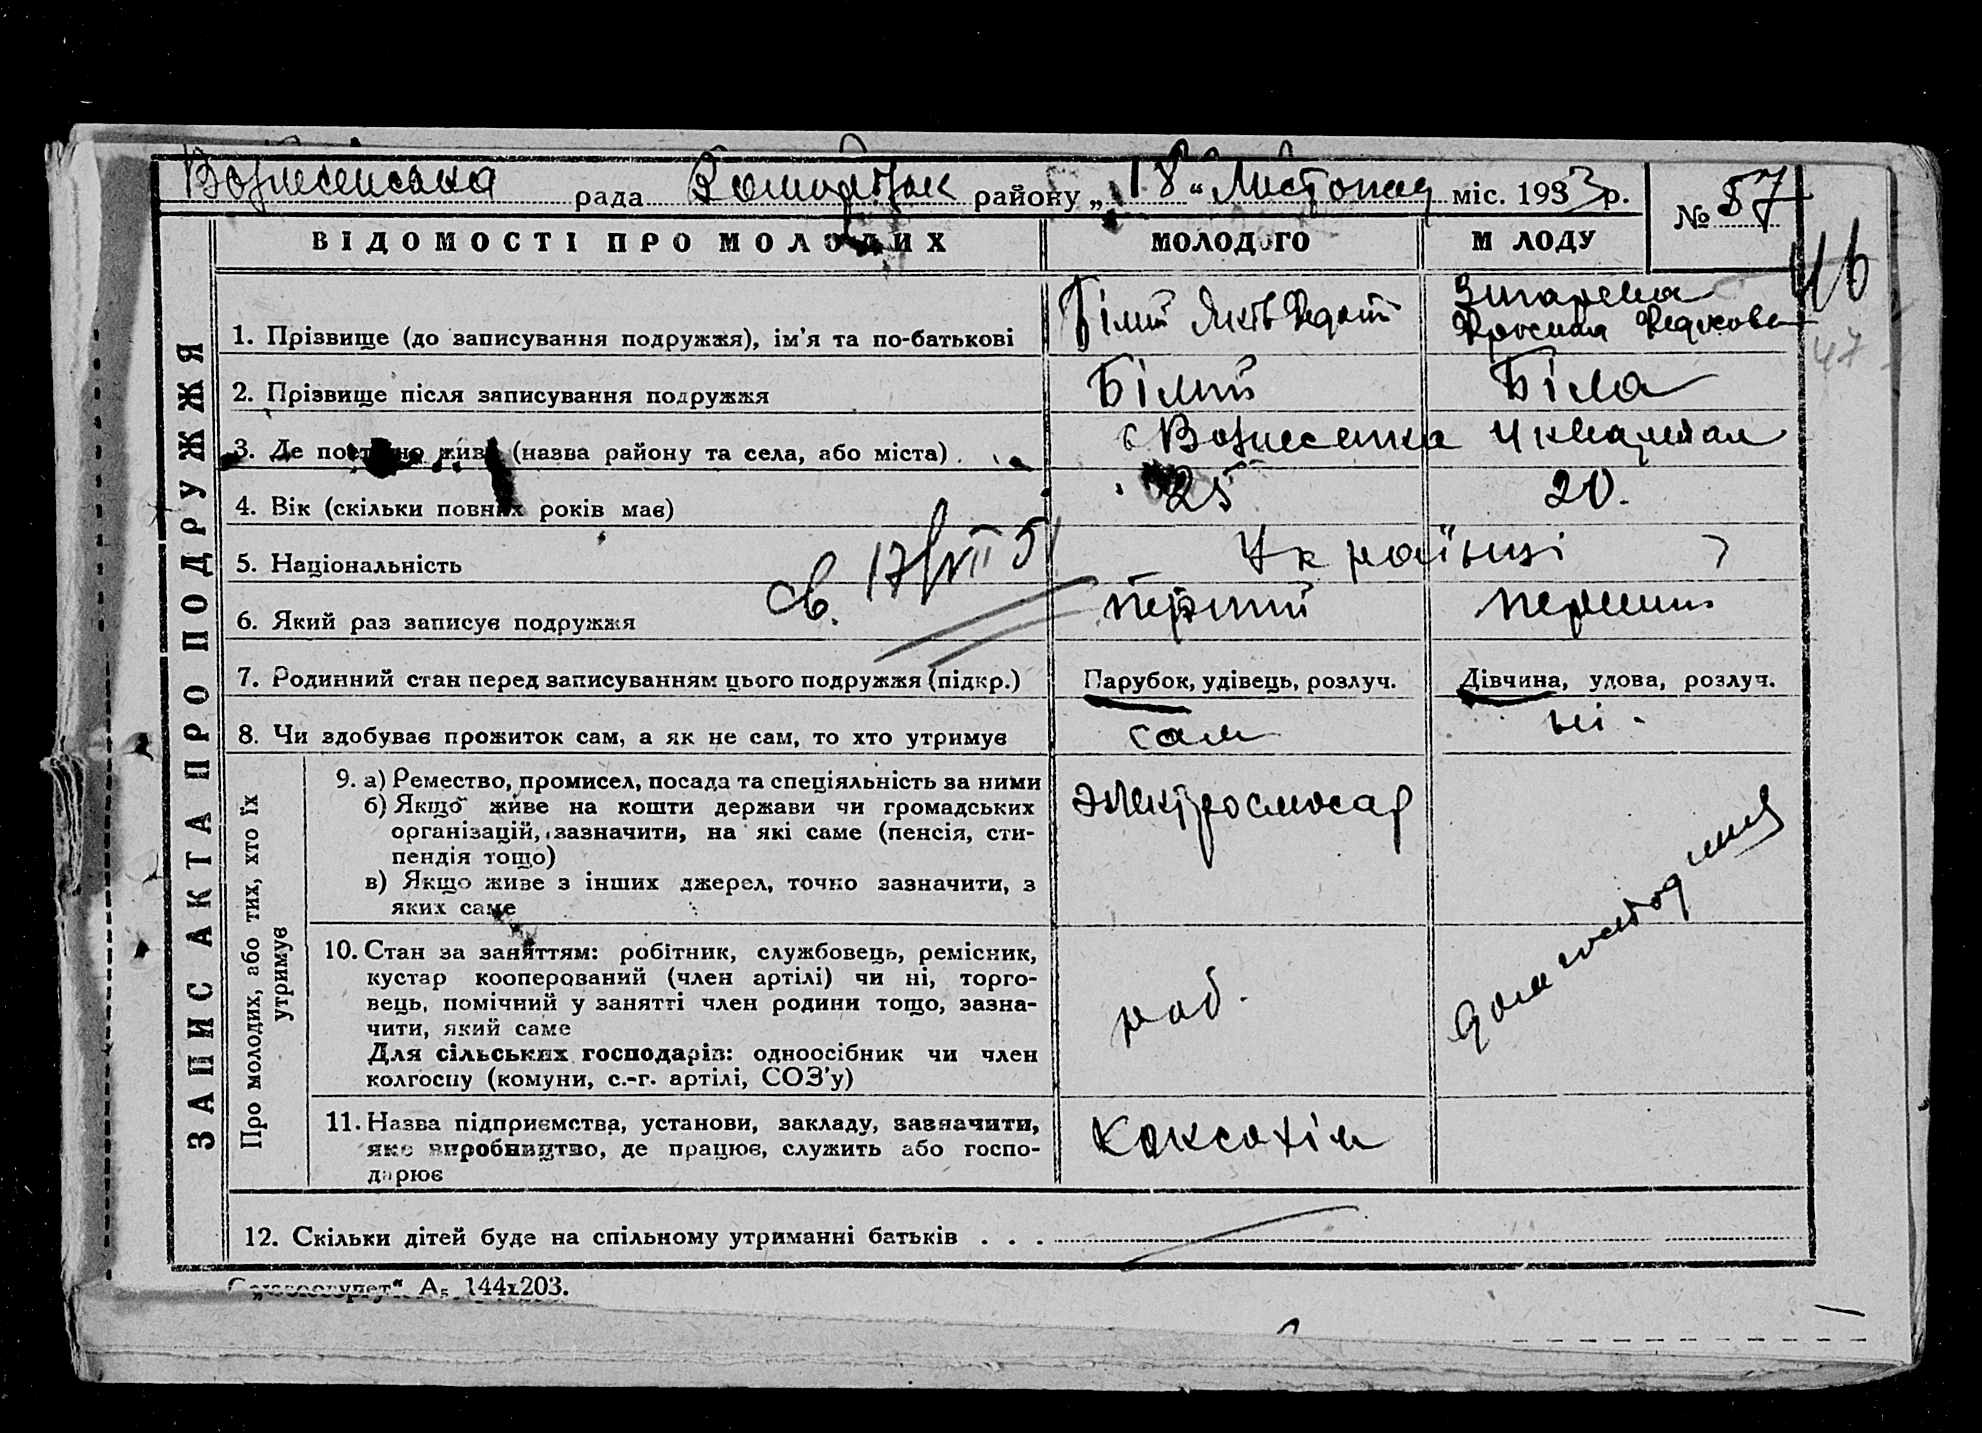 Вознесенська рада района району „18“ Листопад міс. 1933 р. № 57
46
47
ЗАПИС АКТА ПРО ПОДРУЖЖЯ
ВІДОМОСТІ ПРО МОЛОДИХ МОЛОДОГО МОЛОДУ
1. Прізвище (до записування подружжя), ім'я та по-батькові Білий Яків Федот
Федосова
2. Прізвище після записування подружжя Білий Біла
3. Де постійно живе (назва району та села, або міста) с Вознесенка 4 квартал
4. Вік (скільки повних років має) 25 20.
5. Національність Українці
св. 17/VII 51
6. Який раз записує подружжя перший перший
7. Родинний стан перед записуванням цього подружжя (підкр.) Парубок, удівець, розлуч. Дівчина, удова, розлуч.
8. Чи здобуває прожиток сам, а як не сам, то хто утримує сам ні.
Про молодих, або тих, хто їх
утримує
9. а) Ремество, промисел, посада та спеціяльність за ними
б) Якщо живе на кошти держави чи громадських
організацій, зазначити, на які саме (пенсія, сти-
пендія тощо)
в) Якщо живе з інших джерел, точно зазначити, з
яких саме
электрослюсар
домогосподиня
10. Стан за заняттям: робітник, службовець, ремісник,
кустар кооперований (член артілі) чи ні, торго-
вець, помічний у занятті член родини тощо, зазна-
чити, який саме
Для сільських господарів: одноосібник чи член
колгоспу (комуни, с.-г. артілі, СОЗ'у)
роб.
11. Назва підприємства, установи, закладу, зазначити,
яке виробництво, де працює, служить або госпо-
дарює
Коксохім
12. Скільки дітей буде на спільному утриманні батьків . . .
А₅ 144х203.